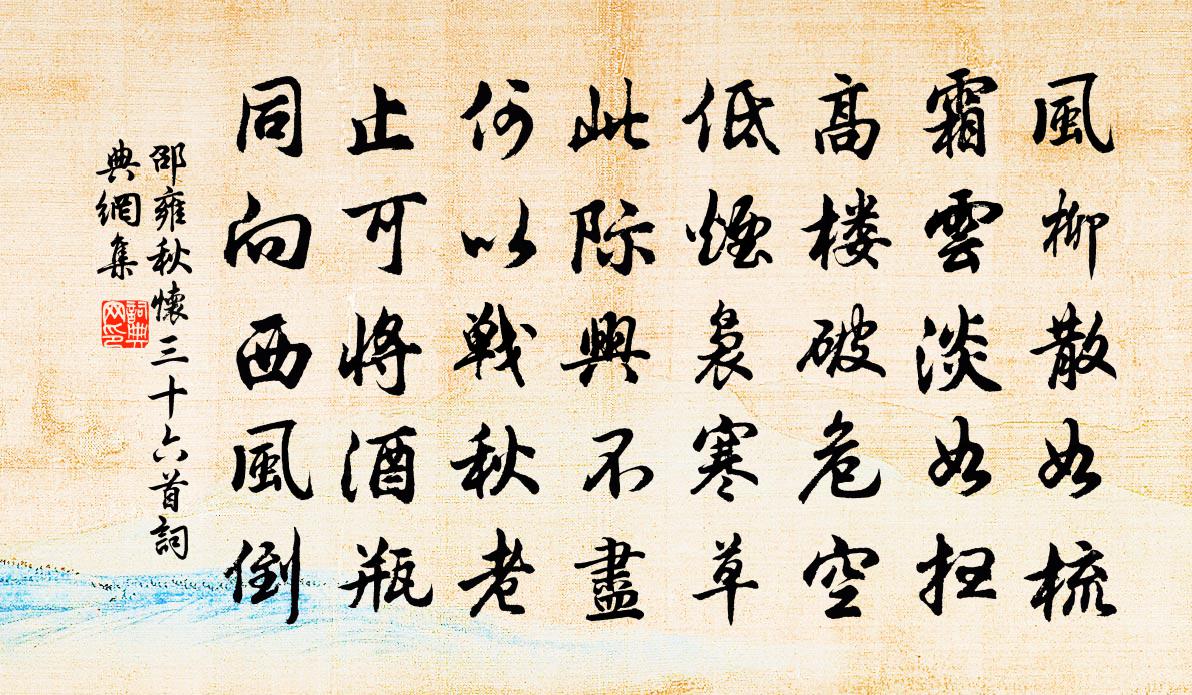 風柳散如梳
霜雲淡如扫
高楼破危空
低煙裊寒草
此際興不盡
何以戦秋老
止可將酒瓶
同向西風倒
邵雍秋懷三十六首詞
典網集
詞典
网印